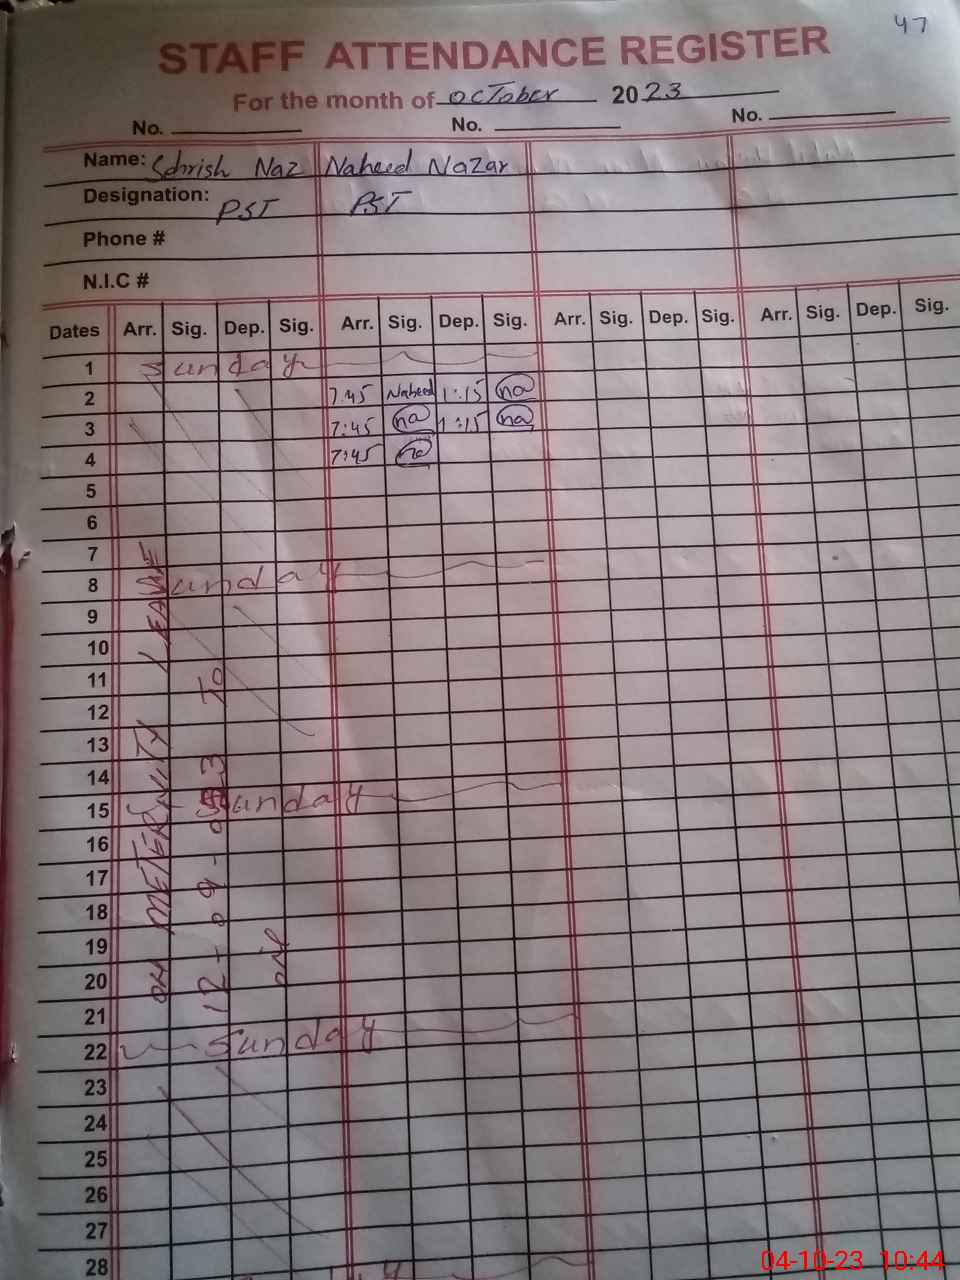 47
STAFF ATTENDANCE REGISTER
For the month of October 2023
No. No. No.
Name: Sehrish Naz Naheed Nazar
Designation: PST PST
Phone #
N.I.C #
Dates Arr. Sig. Dep. Sig. Arr. Sig. Dep. Sig. Arr. Sig. Dep. Sig. Arr. Sig. Dep. Sig.
1 Sunday
2 7:45 Naheed 1:15 na
3 7:45 na 1:15 na
4 7:45 na
5
6
7
8 Sunday
9
10
11
12
13
14
15 Sunday
16
17
18
19
20
21
22 Sunday
23
24
25
26
27
28
ON METERNITY LEAVE
12-09-023 To
04-10-23 10:44